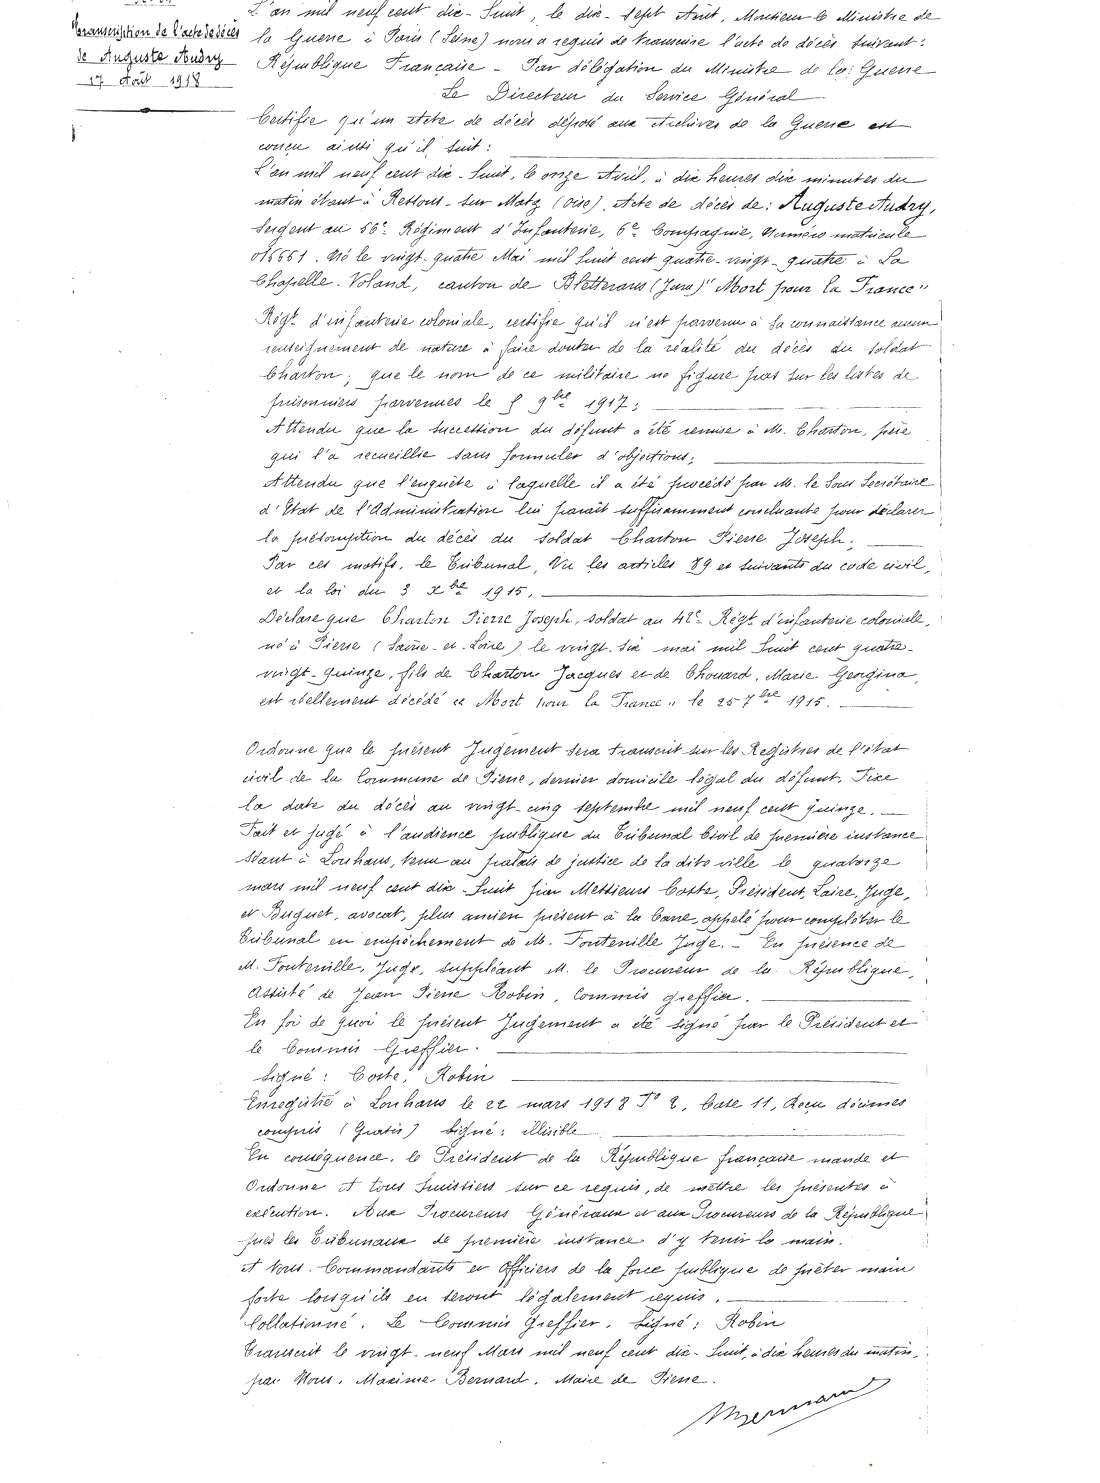 Transcription de l'acte de décès
de Auguste Audry
17 Août 1918
L'an mil neuf cent dix-huit, le dix-sept Août, Monsieur le Ministre de
la Guerre à Paris (Seine) nous a requis de transcrire l'acte de décès suivant:
République Française - Par délégation du Ministre de la Guerre
Le Directeur du Service Général
Certifie qu'un Acte de décès déposé aux Archives de la Guerre est
conçu ainsi qu'il suit:
L'an mil neuf cent dix-huit, le onze Avril, à dix heures dix minutes du
matin étant à Ressons-sur-Matz (Oise), Acte de décès de: Auguste Audry,
Sergent au 56e Régiment d'Infanterie, 6e Compagnie, Numéro matricule
016661. Né le vingt-quatre Mai mil huit cent quatre-vingt-quatre à La
Chapelle-Voland, canton de Bletterans (Jura) "Mort pour la France"
Régt d'infanterie coloniale, certifie qu'il n'est parvenu à sa connaissance aucun
renseignement de nature à faire douter de la réalité du décès du soldat
Charton; que le nom de ce militaire ne figure pas sur les listes de
prisonniers parvenues le 9bre 1917;
Attendu que la succession du défunt a été remise à M. Charton, père
qui l'a recueillie sans formuler d'objections;
Attendu que l'enquête à laquelle il a été procédé par M. le Sous Secrétaire
d'Etat de l'Administration lui paraît suffisamment concluante pour déclarer
la présomption du décès du soldat Charton Pierre Joseph;
Par ces motifs, le Tribunal, Vu les articles 89 et suivants du code civil,
et la loi du 3 Xbre 1915,
Déclare que Charton Pierre Joseph, soldat au 42e Régt d'infanterie coloniale,
né à Pierre (Saône-et-Loire) le vingt-six mai mil huit cent quatre-
vingt-quinze, fils de Charton Jacques et de Chouard, Marie Georgina,
est réellement décédé "Mort pour la France" le 25 7bre 1915.
Ordonne que le présent Jugement sera transcrit sur les Registres de l'état
civil de la Commune de Pierre, dernier domicile légal du défunt. Fixe
la date du décès au vingt-cinq septembre mil neuf cent quinze.
Fait et jugé à l'audience publique du Tribunal Civil de première instance
séant à Louhans, tenu au palais de justice de la dite ville le quatorze
mars mil neuf cent dix-huit par Messieurs Coste, Président, Laire, Juge,
et Buguet, avocat, plus ancien présent à la barre, appelé pour compléter le
Tribunal en empêchement de M. Fonteville Juge. - En présence de
M. Fonteville, Juge, suppléant M. le Procureur de la République,
Assisté de Jean Pierre Robin, Commis greffier.
En foi de quoi le présent Jugement a été signé par le Président et
le Commis Greffier.
Signé: Coste, Robin
Enregistré à Louhans le 22 mars 1918 Fo 2, Case 11, Reçu décimes
compris (Gratis) Signé: illisible
En conséquence, le Président de la République française mande et
Ordonne A tous huissiers sur ce requis, de mettre les présentes à
exécution. Aux Procureurs Généraux et aux Procureurs de la République
près les Tribunaux de première instance d'y tenir la main.
A tous Commandants et Officiers de la force publique de prêter main
forte lorsqu'ils en seront légalement requis.
Collationné. Le Commis Greffier. Signé: Robin
Transcrit le vingt-neuf Mars mil neuf cent dix-huit, à dix heures du matin,
par Nous, Maxime Bernard, Maire de Pierre.